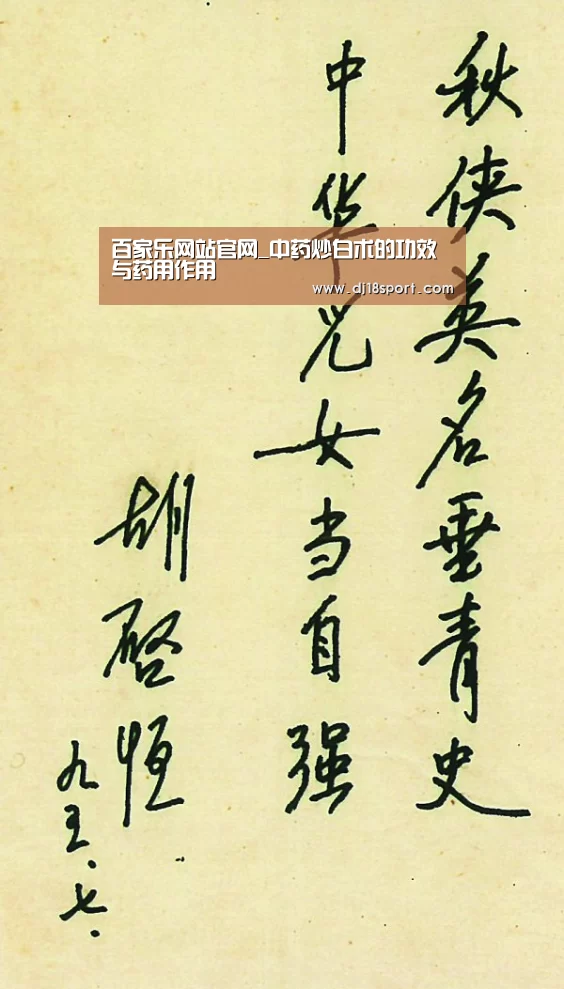 秋侠英名垂青史
中华儿女当自强
胡启恒
九五.七.
百家乐网站官网_中药炒白术的功效
与药用作用
www_dj18sport_com